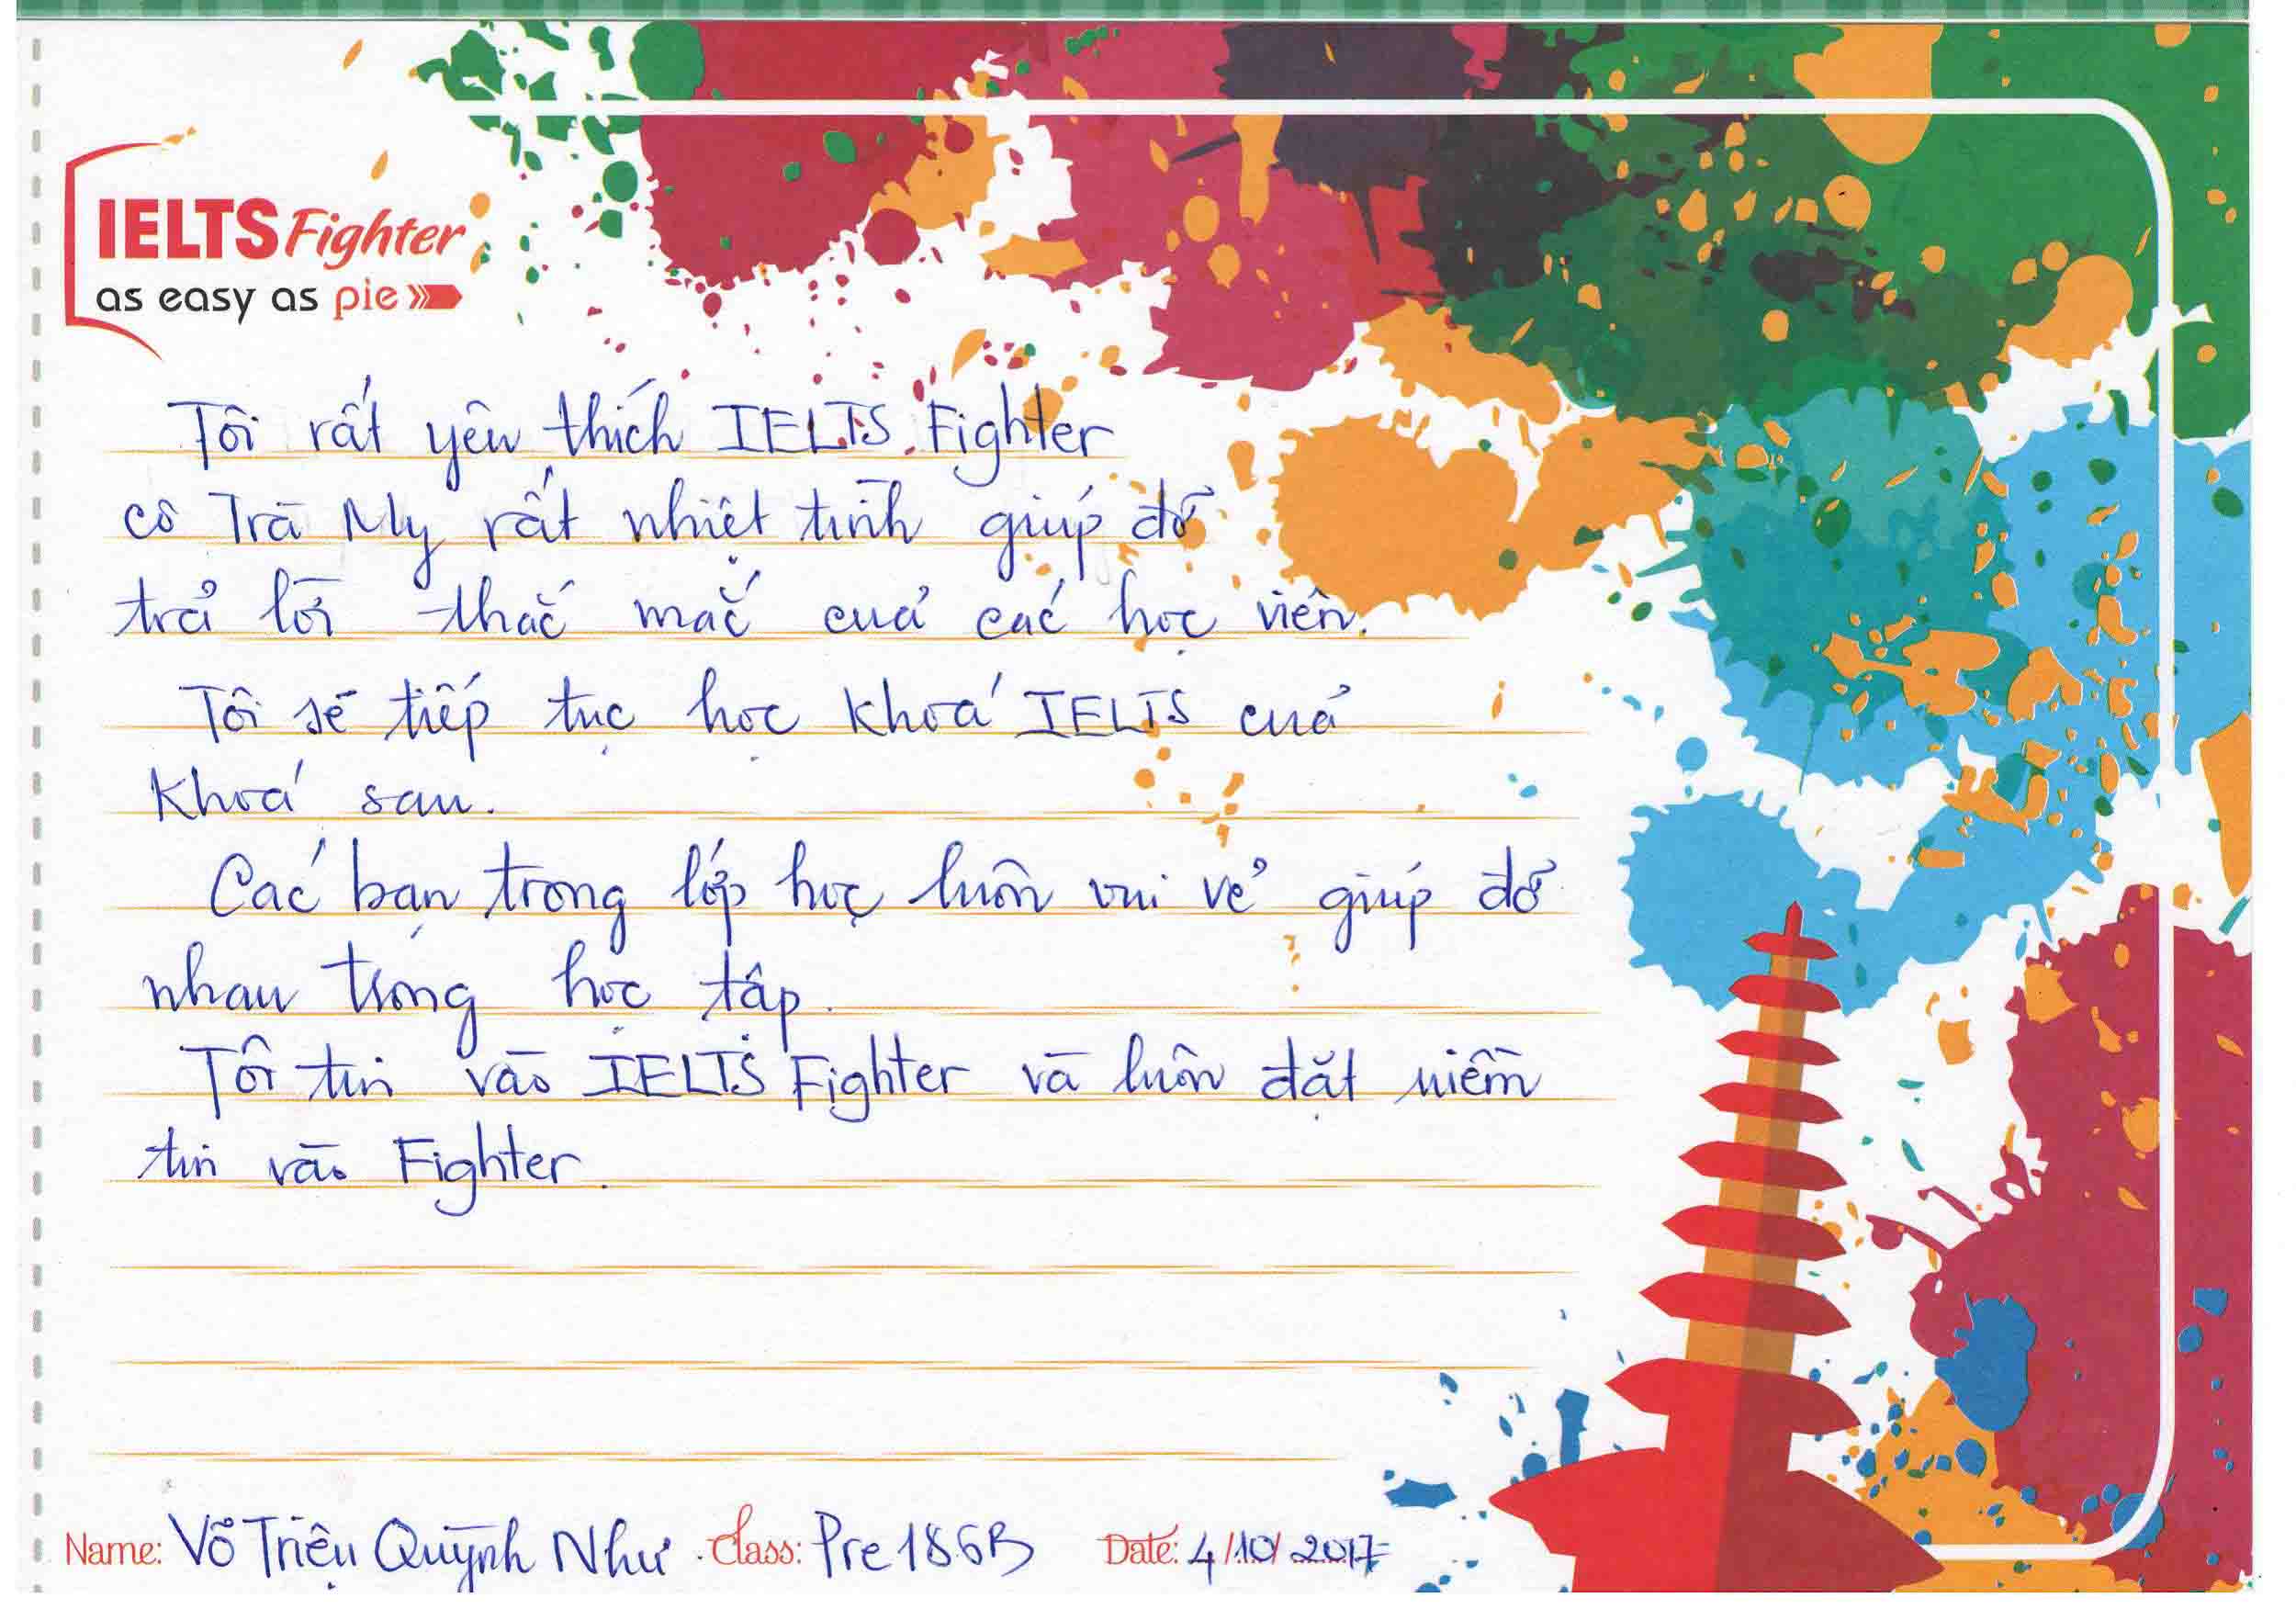 IELTS Fighter
as easy as pie
Tôi rất yêu thích IELTS Fighter
cô Trà My rất nhiệt tình giúp đỡ
trả lời thắc mắc của các học viên.
Tôi sẽ tiếp tục học khoá IELTS của
khoá sau.
Các bạn trong lớp học luôn vui vẻ giúp đỡ
nhau trong học tập.
Tôi tin vào IELTS Fighter và luôn đặt niềm
tin vào Fighter.
Name: Võ Triệu Quỳnh Như. Class: Pre 186B Date: 4/10/2017